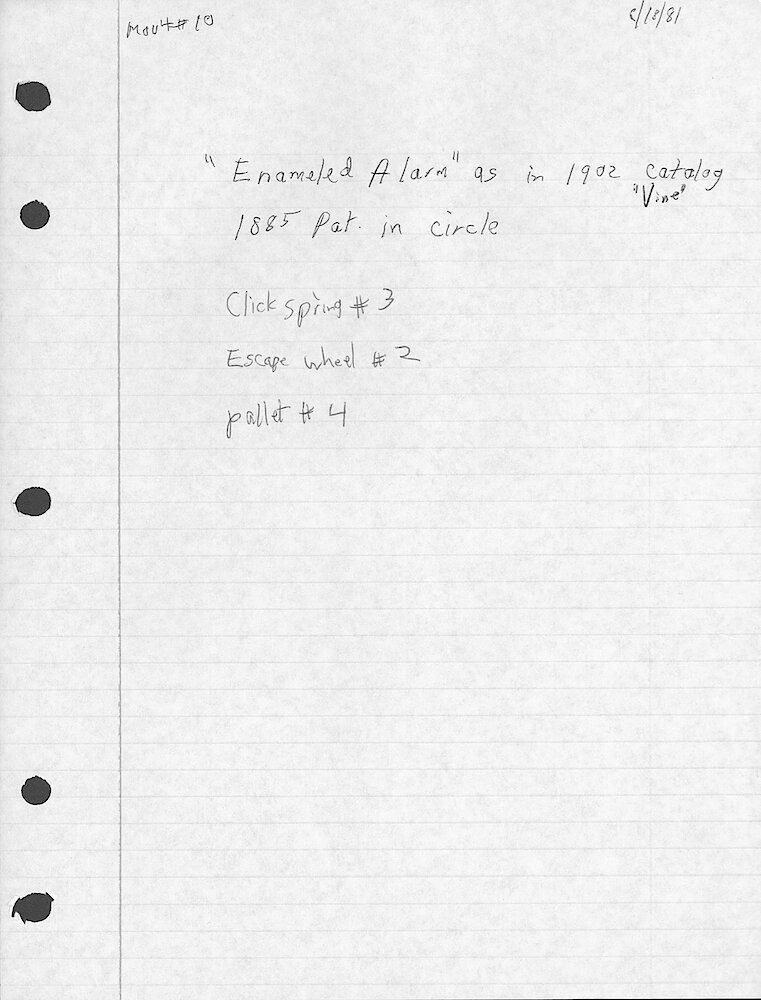 Mov't # 10
8/18/81
"Enameled Alarm" as in 1902 catalog
"Vine"
1885 Pat. in circle
Click spring # 3
Escape wheel # 2
pallet # 4